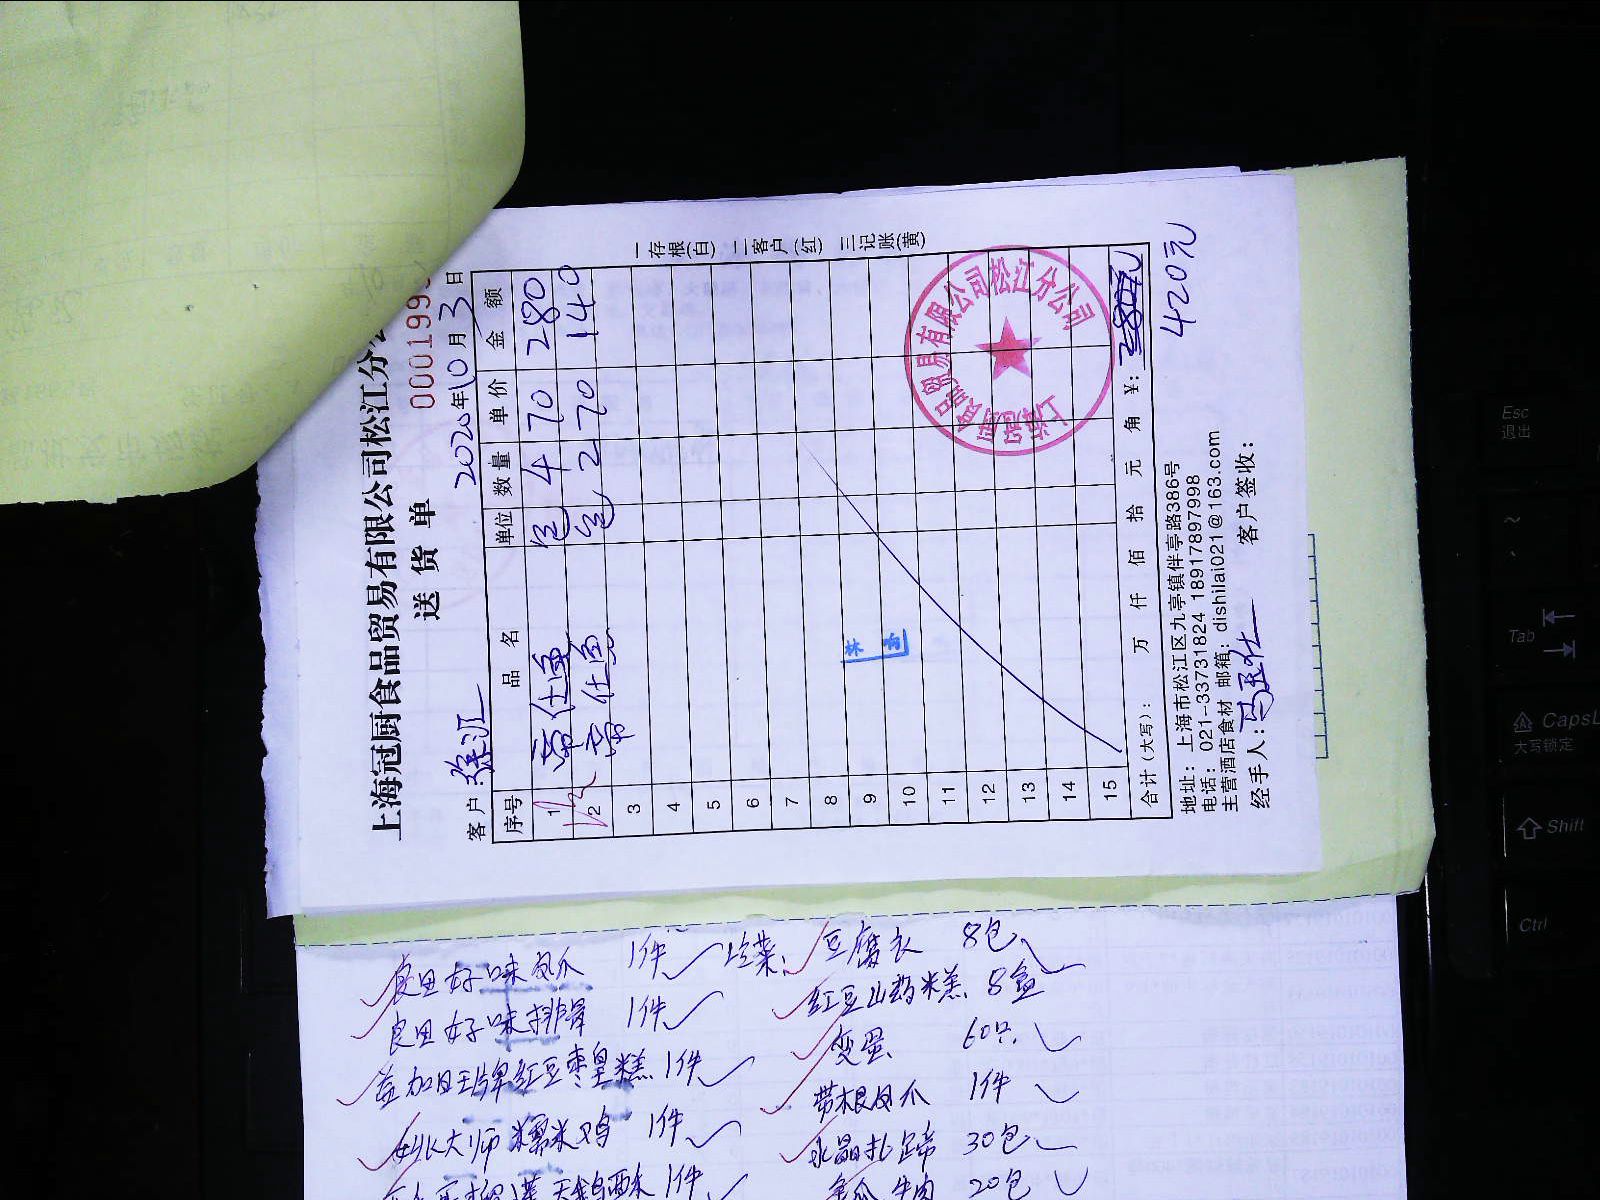 上海冠厨食品贸易有限公司松江分
送货单
0001999
客户：徐汇
2020年10月3日
序号 品名 单位 数量 单价 金额
1 帝仕鱼 包 4 70 280
2 帝仕鱼 包 2 70 140
3
4
5
6
7
8
9
10
11
12
13
14
15
合计（大写）： 万 仟 佰 拾 元 角 ¥：
420元
地址：上海市松江区九亭镇伴亭路386号
电话：021-33731824 18917897998
主营酒店食材 邮箱：dishilai021@163.com
经手人： 客户签收：
一存根(白) 二客户(红) 三记账(黄)
上海冠厨食品贸易有限公司松江分公司
良田好味凤爪 1件
良田好味排骨 1件
益加日王牌红豆枣皇糕 1件
大师糯米鸡 1件
1件
豆腐衣 8包
红豆山药糕 8盒
变蛋 60只
带根凤爪 1件
水晶扎蹄 30包
牛肉 20包
Esc
退出
Tab
CapsL
大写锁定
Shift
Ctrl